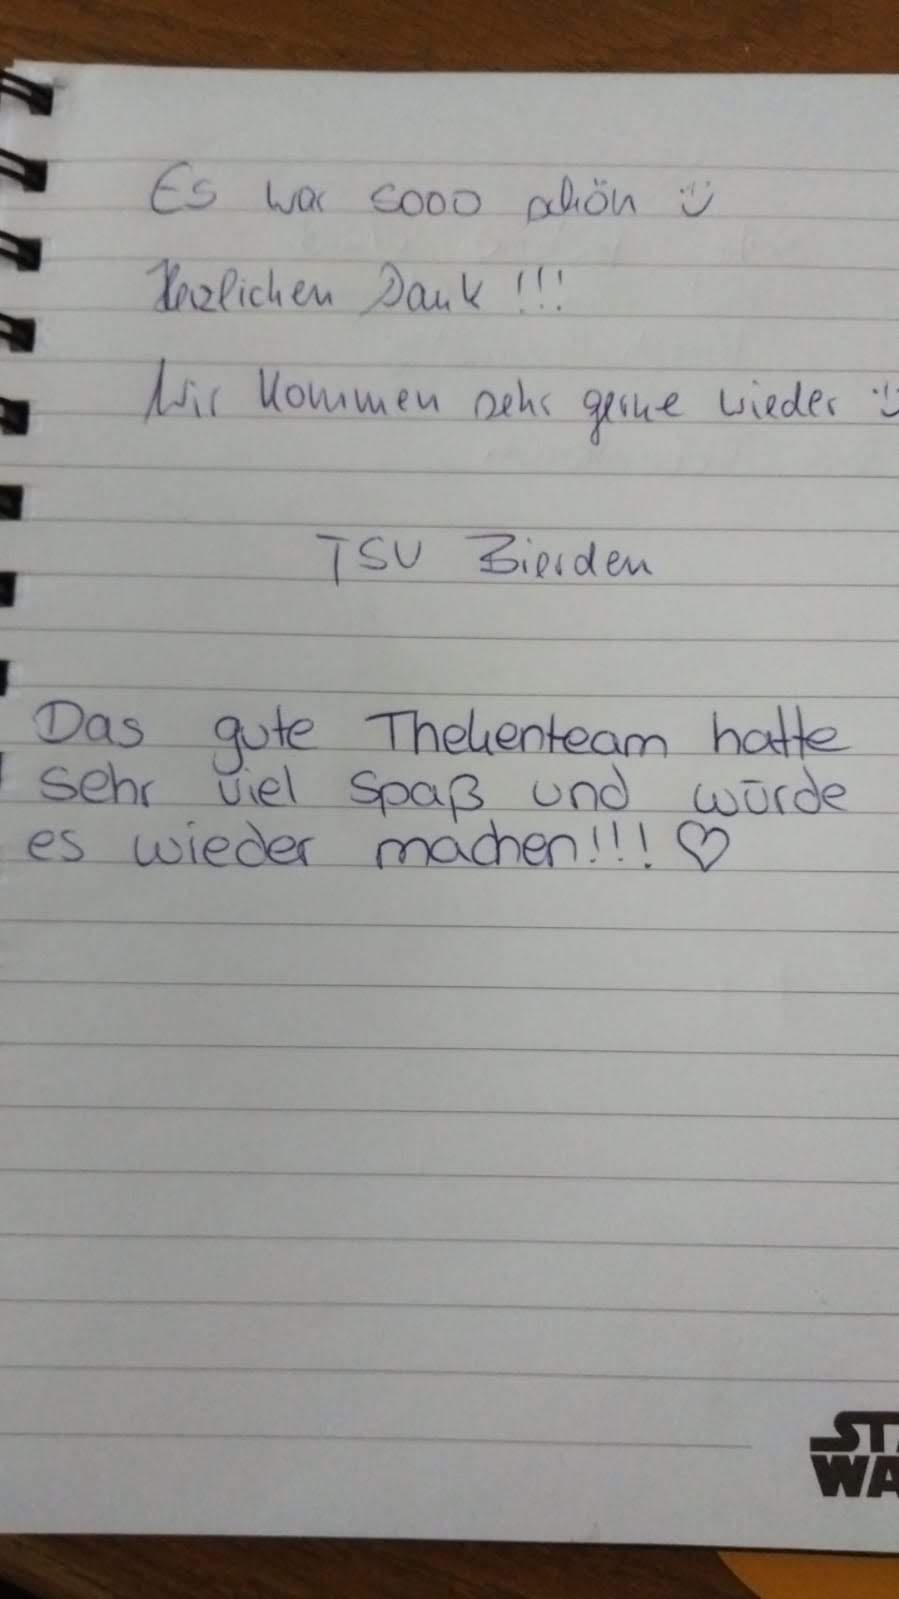 Es war sooo schön :)
Herzlichen Dank !!!
Wir kommen sehr gerne wieder :)
TSV Bierden
Das gute Thekenteam hatte
sehr viel Spaß und würde
es wieder machen!!! ♡
STA
WA